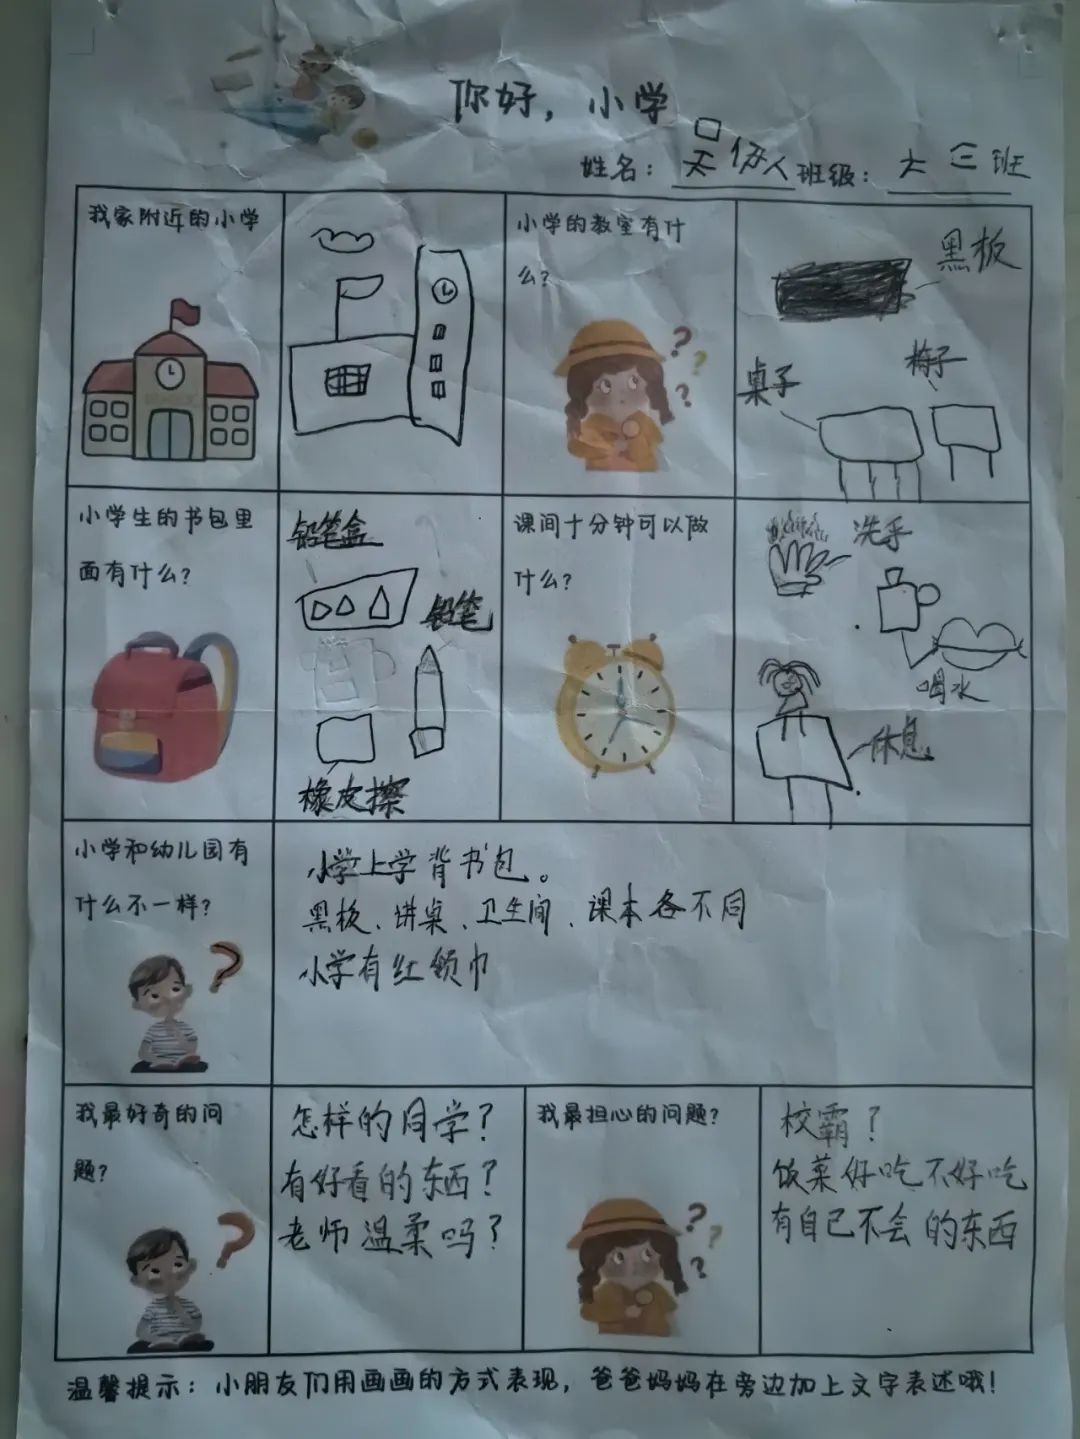 你好，小学
姓名：
班级：大三班
我家附近的小学
小学的教室有什
么？
黑板
桌子
椅子
小学生的书包里
面有什么？
铅笔盒
铅笔
橡皮擦
课间十分钟可以做
什么？
洗手
喝水
休息
小学和幼儿园有
什么不一样？
小学上学背书包。
黑板、讲桌、卫生间、课本各不同
小学有红领巾
我最好奇的问
题？
怎样的同学？
有好看的东西？
老师温柔吗？
我最担心的问题？
校霸？
饭菜好吃不好吃
有自己不会的东西
温馨提示：小朋友们用画画的方式表现，爸爸妈妈在旁边加上文字表述哦！